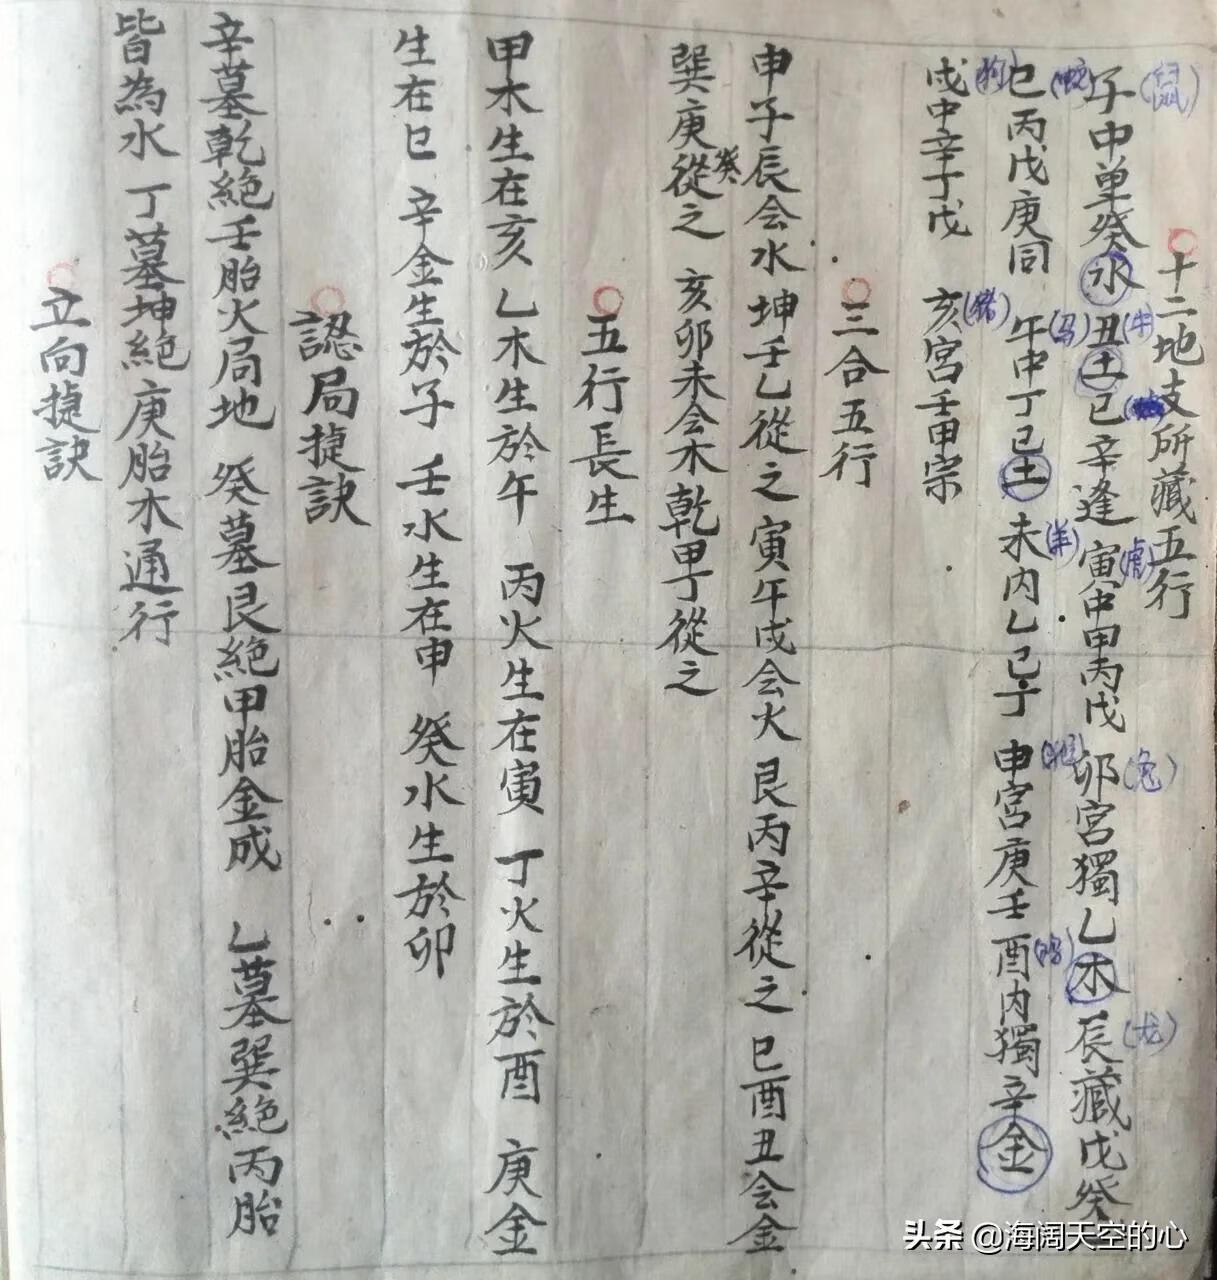 十二地支所藏五行
子(鼠)中單癸水 丑(牛)土己辛逢 寅(虎)中甲丙戊 卯(兔)宮獨乙木 辰(龙)藏戊癸
巳(蛇)丙戊庚同 午(马)中丁己土 未(羊)内乙己丁 申(猴)宮庚壬 酉(鸡)内獨辛金
戌(狗)中辛丁戊 亥(猪)宮壬甲宗
三合五行
申子辰会水 坤壬乙從之 寅午戌会火 艮丙辛從之 巳酉丑会金
巽庚癸從之 亥卯未会木 乾甲丁從之
五行長生
甲木生在亥 乙木生於午 丙火生在寅 丁火生於酉 庚金
生在巳 辛金生於子 壬水生在申 癸水生於卯
認局捷訣
辛墓乾絶壬胎火局地 癸墓艮絶甲胎金成 乙墓巽絶丙胎
皆為水 丁墓坤絶庚胎木通行
立向捷訣
头条 @海阔天空的心